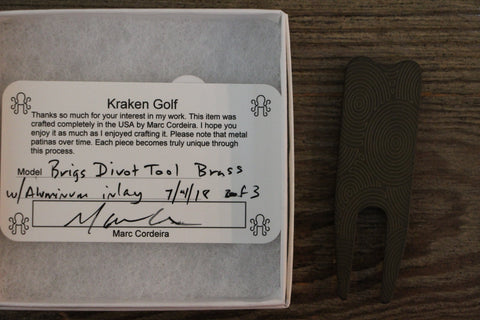 Kraken Golf
Thanks so much for your interest in my work. This item was
crafted completely in the USA by Marc Cordeira. I hope you
enjoy it as much as I enjoyed crafting it. Please note that metal
patinas over time. Each piece becomes truly unique through
this process.
Model Brigs Divot Tool Brass
w/ Aluminum inlay 7/4/18 2of 3
Marc Cordeira